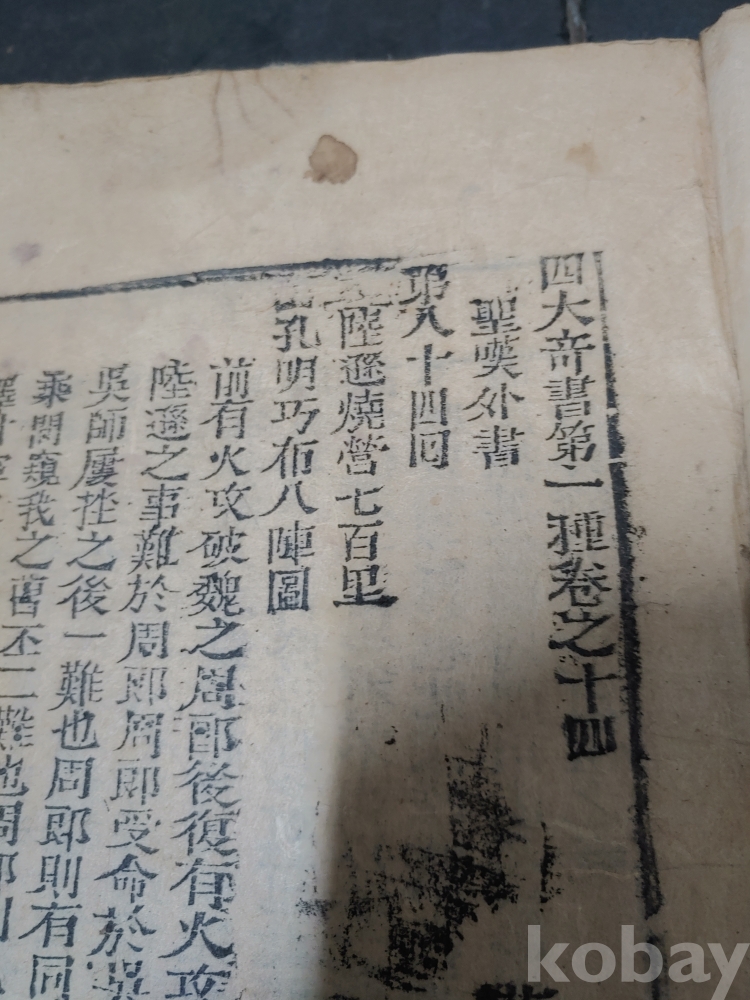 四大奇書第一種卷之十四
聖嘆外書
第八十四回
陸遜燒營七百里
孔明巧布八陣圖
前有火攻破魏之周郎後復有火攻
陸遜之事難於周郎周郎受命於吳
吳師屢挫之後一難也周郎則有同
乘間窺我之曹丕二難也周郎則
kobay